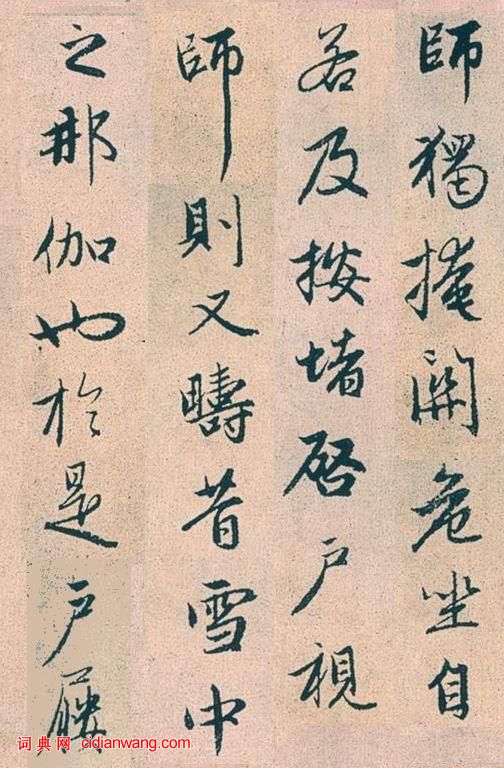 師獨掩關危坐自
若及按堵啓戶視
師則又疇昔雪中
之那伽也於是戶屨
词典网 cidianwang.com